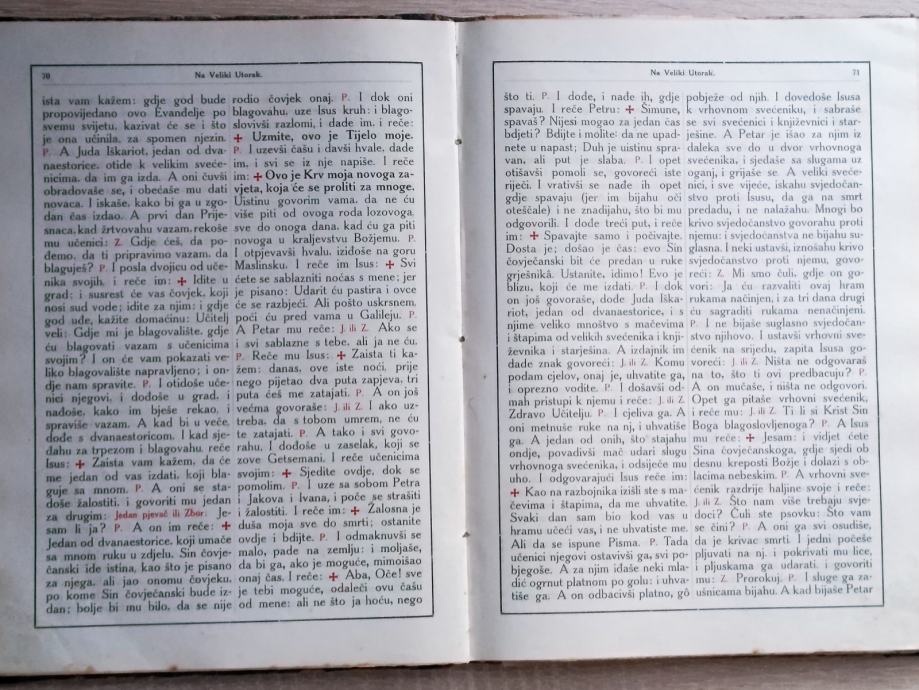 70
Na Veliki Utorak.
ista vam kažem: gdje god bude
propovijedano ovo Evanđelje po
svemu svijetu, kazivat će se i što
je ona učinila, za spomen njezin.
P. A Juda Iškariot, jedan od dva-
naestorice, otide k velikim sveće-
nicima, da im ga izda. A oni čuvši
obradovaše se, i obećaše mu dati
novaca. I iskaše, kako bi ga u zgo-
dan čas izdao. A prvi dan Prije-
snaca, kad žrtvovahu vazam, rekoše
mu učenici: Z. Gdje ćeš, da po-
đemo, da ti pripravimo vazam, da
blaguješ? P. I posla dvojicu od uče-
nika svojih, i reče im: ✠ Idite u
grad; i susrest će vas čovjek, koji
nosi sud vode; idite za njim; i gdje
god uđe, kažite domaćinu: Učitelj
veli: Gdje mi je blagovalište, gdje
ću blagovati vazam s učenicima
svojim? I on će vam pokazati ve-
liko blagovalište napravljeno; i on-
dje nam spravite. P. I otidoše uče-
nici njegovi, i dođoše u grad, i
nađoše, kako im bješe rekao, i
spraviše vazam. A kad bi u veče,
dođe s dvanaestoricom. I kad sje-
đahu za trpezom i blagovahu, reče
Isus: ✠ Zaista vam kažem, da će
me jedan od vas izdati, koji bla-
guje sa mnom. P. A oni se sta-
doše žalostiti, i govoriti mu jedan
za drugim: Jedan pjevač ili Zbor: Je-
sam li ja? P. A on im reče: ✠
Jedan od dvanaestorice, koji umače
sa mnom ruku u zdjelu. Sin čovje-
čanski ide istina, kao što je pisano
za njega, ali jao onomu čovjeku,
po kome Sin čovječanski bude iz-
dan; bolje bi mu bilo, da se nije
rodio čovjek onaj. P. I dok oni
blagovahu, uze Isus kruh; i blago-
slovivši razlomi, i dade im, i reče:
✠ Uzmite, ovo je Tijelo moje.
P. I uzevši čašu i davši hvale, dade
im, i svi se iz nje napiše. I reče
im: ✠ Ovo je Krv moja novoga za-
vjeta, koja će se proliti za mnoge.
Uistinu govorim vama, da ne ću
više piti od ovoga roda lozovoga,
sve do onoga dana, kad ću ga piti
novoga u kraljevstvu Božjemu. P.
I otpjevavši hvalu, iziđoše na goru
Maslinsku. I reče im Isus: ✠ Svi
ćete se sablazniti noćas s mene; jer
je pisano: Udarit ću pastira i ovce
će se razbjeći. Ali pošto uskrsnem,
poći ću pred vama u Galileju. P.
A Petar mu reče: J. ili Z. Ako se
i svi sablazne s tebe, ali ja ne ću.
P. Reče mu Isus: ✠ Zaista ti ka-
žem: danas, ove iste noći, prije
nego pijetao dva puta zapjeva, tri
puta ćeš me zatajati. P. A on još
većma govoraše: J. ili Z. I ako uz-
treba, da s tobom umrem, ne ću
te zatajati. P. A tako i svi govo-
rahu. I dođoše u zaselak, koji se
zove Getsemani. I reče učenicima
svojim: ✠ Sjedite ovdje, dok se
pomolim. P. I uze sa sobom Petra
i Jakova i Ivana, i poče se strašiti
i žalostiti. I reče im: ✠ Žalosna je
duša moja sve do smrti; ostanite
ovdje i bdijte. P. I odmaknuvši se
malo, pade na zemlju: i moljaše,
da bi ga, ako je moguće, mimoišao
onaj čas. I reče: ✠ Aba, Oče! sve
je tebi moguće, odaleči ovu čašu
od mene: ali ne što ja hoću, nego
Na Veliki Utorak.
71
što ti. P. I dođe, i nađe ih, gdje
spavaju. I reče Petru: ✠ Šimune,
spavaš? Nijesi mogao za jedan čas
bdjeti? Bdijte i molite: da ne upad-
nete u napast; Duh je uistinu spra-
van, ali put je slaba. P. I opet
otišavši pomoli se, govoreći iste
riječi. I vrativši se nađe ih opet
gdje spavaju (jer im bijahu oči
oteščale) i ne znadijahu, što bi mu
odgovorili. I dođe treći put, i reče
im: ✠ Spavajte samo i počivajte.
Dosta je; došao je čas: evo Sin
čovječanski bit će predan u ruke
grješnikâ. Ustanite, idimo! Evo je
blizu, koji će me izdati. P. I dok
on još govoraše, dođe Juda Iška-
riot, jedan od dvanaestorice, i s
njime veliko mnoštvo s mačevima
i štapima od velikih svećenika i knji-
ževnika i starješina. A izdajnik im
dade znak govoreći: J. ili Z. Komu
podam cjelov, onaj je, uhvatite ga,
i oprezno vodite. P. I došavši od-
mah pristupi k njemu i reče: J. ili Z.
Zdravo Učitelju. P. I cjeliva ga. A
oni metnuše ruke na nj, i uhvatiše
ga. A jedan od onih, što stajahu
ondje, povadivši mač udari slugu
vrhovnoga svećenika, i odsiječe mu
uho. I odgovarajući Isus reče im:
✠ Kao na razbojnika izišli ste s ma-
čevima i štapima, da me uhvatite.
Svaki dan sam bio kod vas u
hramu učeći vas, i ne uhvatiste me.
Ali da se ispune Pisma. P. Tada
učenici njegovi ostavivši ga, svi po-
bjegoše. A za njim iđaše neki mla-
dić ogrnut platnom po golu: i uhva-
tiše ga. A on odbacivši platno, gô
pobježe od njih. I dovedoše Isusa
k vrhovnom svećeniku, i sabraše
se svi svećenici i književnici i star-
ješine. A Petar je išao za njim iz
daleka sve do u dvor vrhovnoga
svećenika, i sjeđaše sa slugama uz
oganj, i grijaše se. A veliki sveće-
nici, i sve vijeće, iskahu svjedočan-
stvo proti Isusu, da ga na smrt
predadu, i ne nalažahu. Mnogi bo
krivo svjedočanstvo govorahu proti
njemu: i svjedočanstva ne bijahu su-
glasna. I neki ustavši, iznošahu krivo
svjedočanstvo proti njemu, govo-
reći: Z. Mi smo čuli, gdje on go-
vori: Ja ću razvaliti ovaj hram
rukama načinjen, i za tri dana drugi
ću sagraditi rukama nenačinjeni.
P. I ne bijaše suglasno svjedočan-
stvo njihovo. I ustavši vrhovni sve-
ćenik na srijedu, zapita Isusa go-
voreći: J. ili Z. Ništa ne odgovaraš
na to, što ti ovi predbacuju? P.
A on mučaše, i ništa ne odgovori.
Opet ga pitaše vrhovni svećenik,
i reče mu: J. ili Z. Ti li si Krist Sin
Boga blagoslovljenoga? P. A Isus
mu reče: ✠ Jesam: i vidjet ćete
Sina čovječanskoga, gdje sjedi ob
desnu kreposti Božje i dolazi s ob-
lacima nebeskim. P. A vrhovni sve-
ćenik razdrije haljine svoje i reče:
J. ili Z. Što nam više trebaju svje-
doci? Čuli ste psovku: Što vam
se čini? P. A oni ga svi osudiše,
da je krivac smrti. I jedni počeše
pljuvati na nj, i pokrivati mu lice,
i pljuskama ga udarati, i govoriti
mu: Z. Prorokuj. P. I sluge ga za-
ušnicama bijahu. A kad bijaše Petar